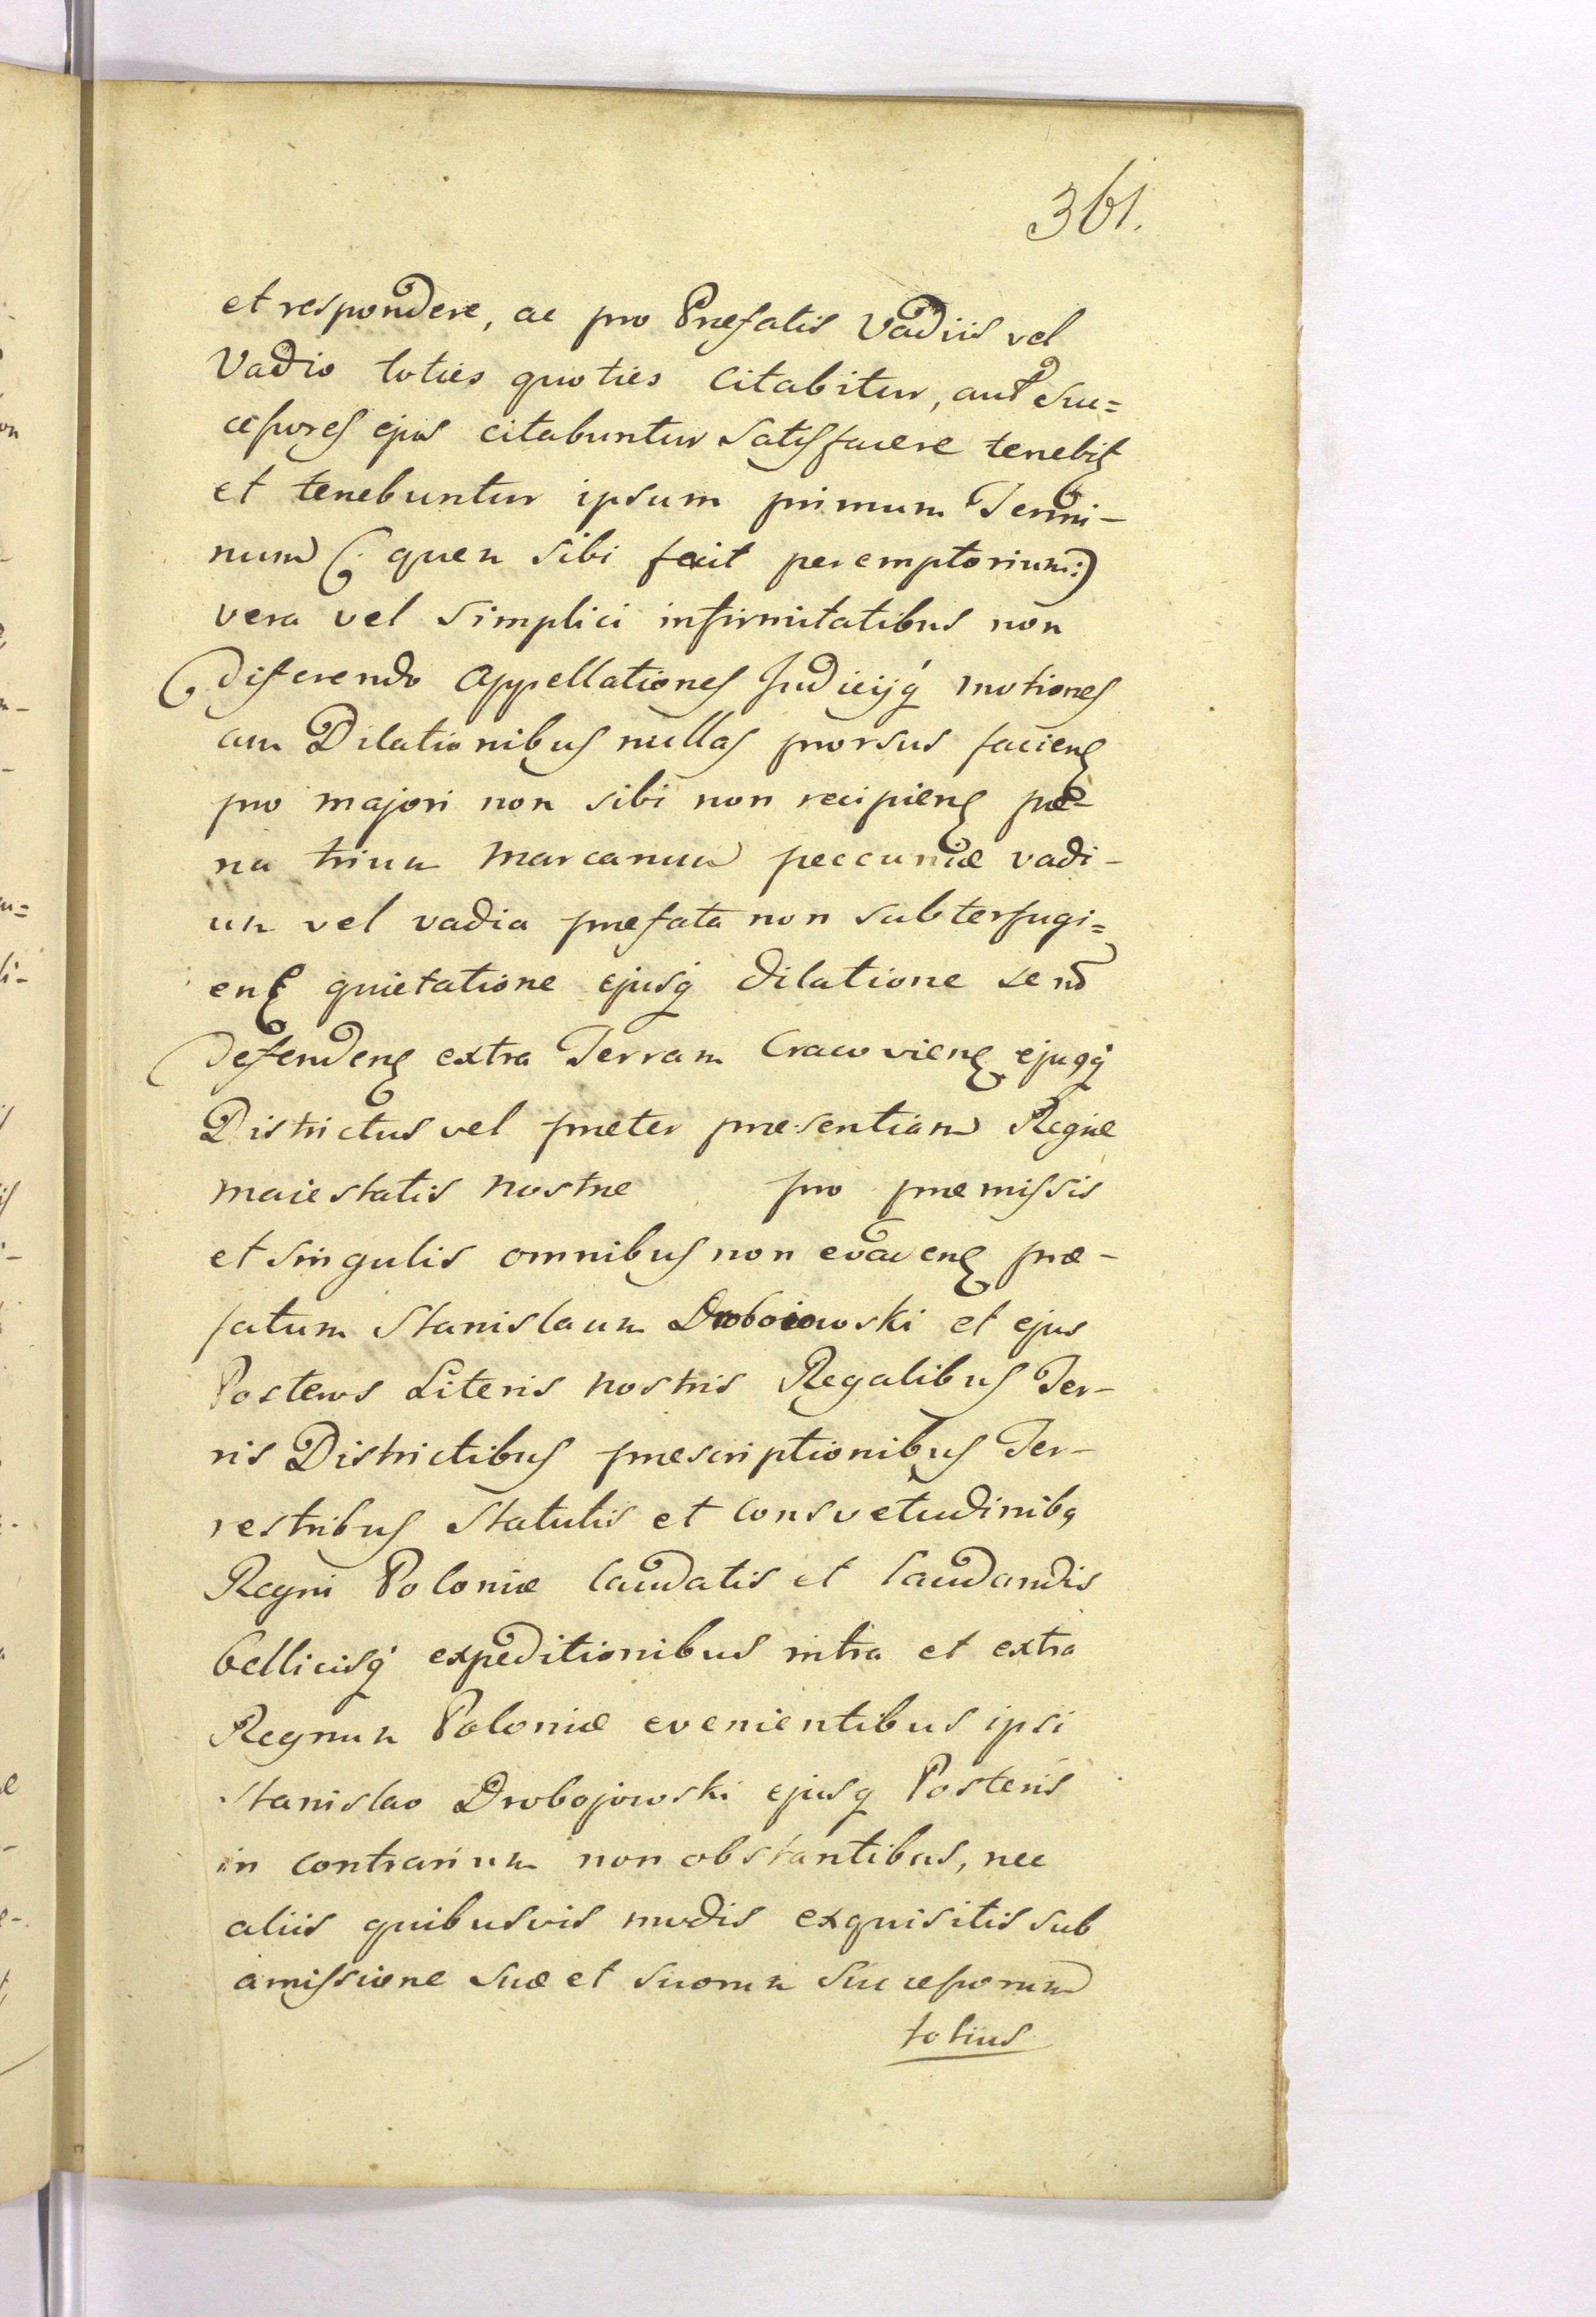 361.
et respondere, ac pro Præfatis Vadiis vel
Vadio toties quoties citabitur, aut Suc=
cessores ejus citabuntur Satisfacere tenebit
et tenebuntur ipsum primum Termi-
num (: quem sibi facit peremptorium :)
vera vel simplici infirmitatibus non
differendo Appellationes Judicijq́ motiones
cum Dilationibus nullas prorsus faciens
pro majori non sibi non recipiens pœ-
na trium Marcarum peccuniæ vadi-
um vel vadia præfata non subterfugi=
ens quietatione ejusq dilatione se non
defendens extra Terram Cracoviens ejusq́
Districtus vel præter præsentiam Regiæ
Maiestatis Nostræ pro præmissis
et singulis omnibus non evadens præ-
fatum Stanislaum Droboiowski et ejus
Posteros Literis Nostris Regalibus Ter-
ris Districtibus præscriptionibus Ter-
restribus Statutis et Consvetudinibq
Regni Poloniæ laudatis et laudandis
bellicisq́ expeditionibus intra et extra
Regnum Poloniæ evenientibus ipsi
Stanislao Drobojowski ejusq Posteris
in contrarium non obstantibus, nec
aliis quibusvis modis exquisitis sub
amissione suæ et suorum Successorum
totius